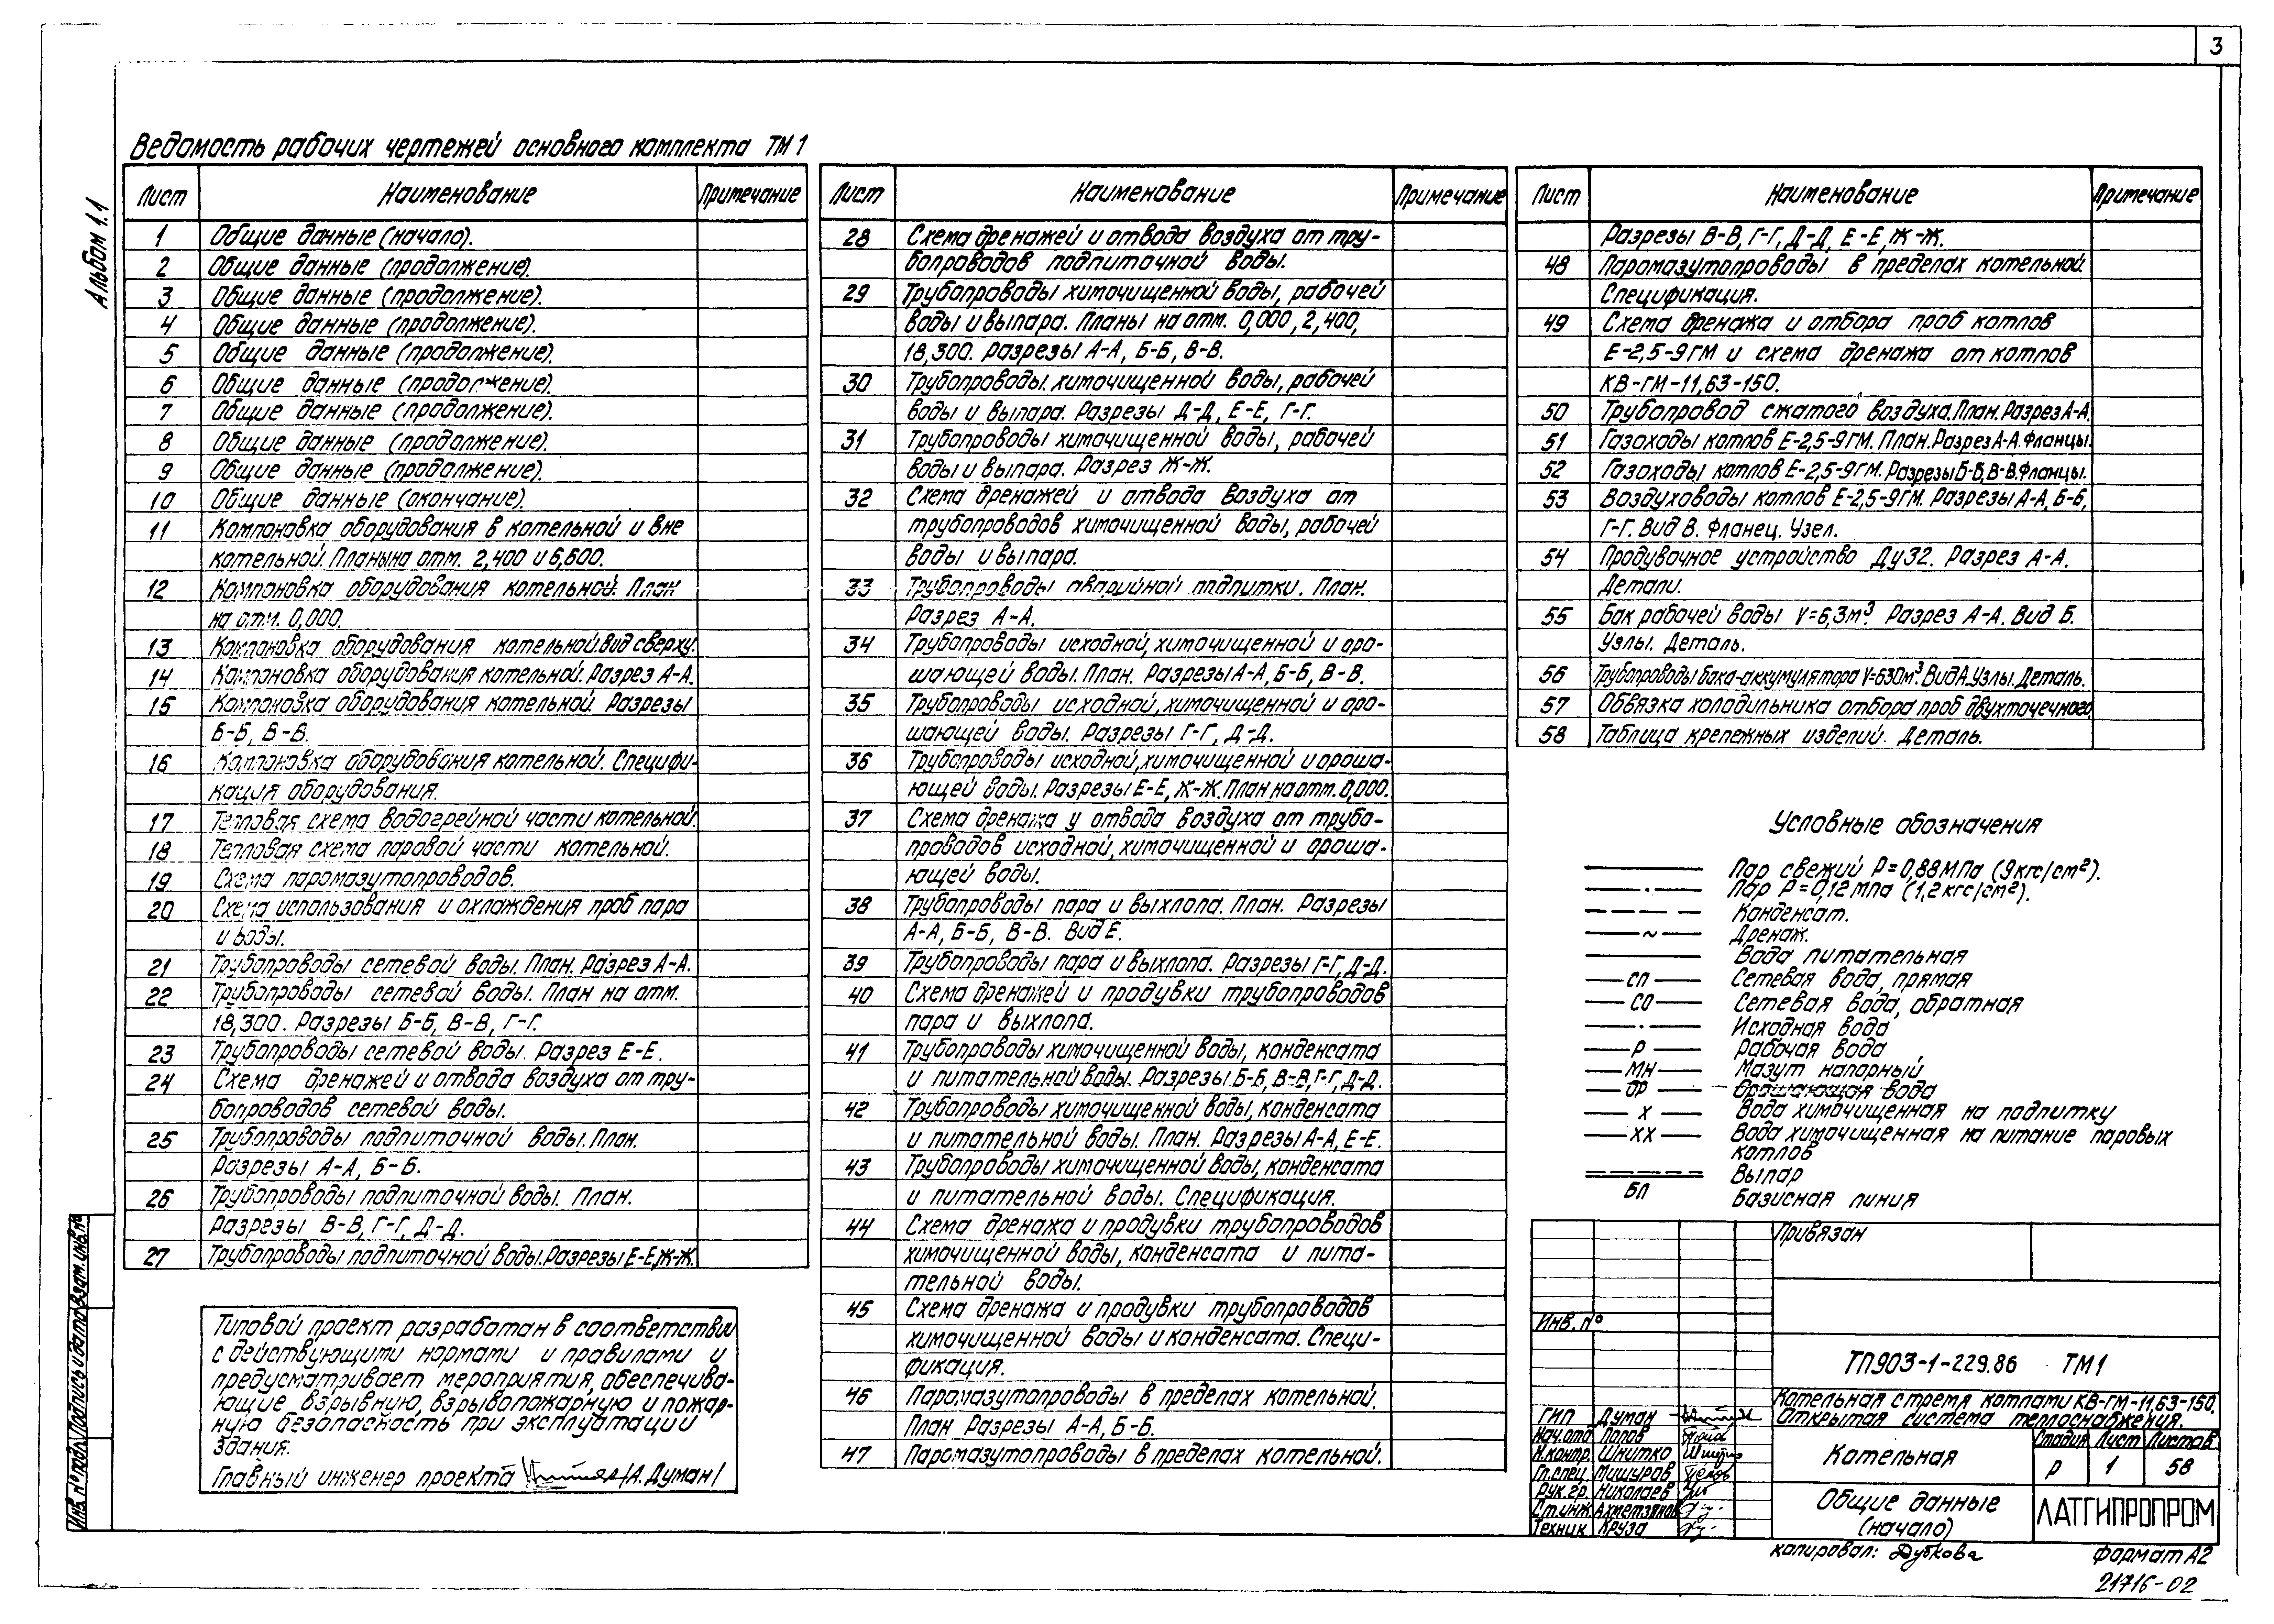 3
Альбом 1.1
Ведомость рабочих чертежей основного комплекта ТМ 1
Лист Наименование Примечание
1 Общие данные (начало).
2 Общие данные (продолжение).
3 Общие данные (продолжение).
4 Общие данные (продолжение).
5 Общие данные (продолжение).
6 Общие данные (продолжение).
7 Общие данные (продолжение).
8 Общие данные (продолжение).
9 Общие данные (продолжение).
10 Общие данные (окончание).
11 Компоновка оборудования в котельной и вне
котельной. Планы на отм. 2,400 и 6,600.
12 Компоновка оборудования котельной. План
на отм. 0,000.
13 Компоновка оборудования котельной. Вид сверху.
14 Компоновка оборудования котельной. Разрез А-А.
15 Компоновка оборудования котельной. Разрезы
Б-Б, В-В.
16 Компоновка оборудования котельной. Специфи-
кация оборудования.
17 Тепловая схема водогрейной части котельной.
18 Тепловая схема паровой части котельной.
19 Схема паромазутопроводов.
20 Схема использования и охлаждения проб пара
и воды.
21 Трубопроводы сетевой воды. План. Разрез А-А.
22 Трубопроводы сетевой воды. План на отм.
18,300. Разрезы Б-Б, В-В, Г-Г.
23 Трубопроводы сетевой воды. Разрез Е-Е.
24 Схема дренажей и отвода воздуха от тру-
бопроводов сетевой воды.
25 Трубопроводы подпиточной воды. План.
Разрезы А-А, Б-Б.
26 Трубопроводы подпиточной воды. План.
Разрезы В-В, Г-Г, Д-Д.
27 Трубопроводы подпиточной воды. Разрезы Е-Е, Ж-Ж.
Лист Наименование Примечание
28 Схема дренажей и отвода воздуха от тру-
бопроводов подпиточной воды.
29 Трубопроводы химочищенной воды, рабочей
воды и выпара. Планы на отм. 0,000, 2,400,
18,300. Разрезы А-А, Б-Б, В-В.
30 Трубопроводы химочищенной воды, рабочей
воды и выпара. Разрезы Д-Д, Е-Е, Г-Г.
31 Трубопроводы химочищенной воды, рабочей
воды и выпара. Разрез Ж-Ж.
32 Схема дренажей и отвода воздуха от
трубопроводов химочищенной воды, рабочей
воды и выпара.
33 Трубопроводы аварийной подпитки. План.
Разрез А-А.
34 Трубопроводы исходной, химочищенной и оро-
шающей воды. План. Разрезы А-А, Б-Б, В-В.
35 Трубопроводы исходной, химочищенной и оро-
шающей воды. Разрезы Г-Г, Д-Д.
36 Трубопроводы исходной, химочищенной и ороша-
ющей воды. Разрезы Е-Е, Ж-Ж. План на отм. 0,000.
37 Схема дренажа у отвода воздуха от трубо-
проводов исходной, химочищенной и ороша-
ющей воды.
38 Трубопроводы пара и выхлопа. План. Разрезы
А-А, Б-Б, В-В. Вид Е.
39 Трубопроводы пара и выхлопа. Разрезы Г-Г, Д-Д.
40 Схема дренажей и продувки трубопроводов
пара и выхлопа.
41 Трубопроводы химочищенной воды, конденсата
и питательной воды. Разрезы Б-Б, В-В, Г-Г, Д-Д.
42 Трубопроводы химочищенной воды, конденсата
и питательной воды. План. Разрезы А-А, Е-Е.
43 Трубопроводы химочищенной воды, конденсата
и питательной воды. Спецификация.
44 Схема дренажа и продувки трубопроводов
химочищенной воды, конденсата и пита-
тельной воды.
45 Схема дренажа и продувки трубопроводов
химочищенной воды и конденсата. Специ-
фикация.
46 Паромазутопроводы в пределах котельной.
План Разрезы А-А, Б-Б.
47 Паромазутопроводы в пределах котельной.
Лист Наименование Примечание
Разрезы В-В, Г-Г, Д-Д, Е-Е, Ж-Ж.
48 Паромазутопроводы в пределах котельной.
Спецификация.
49 Схема дренажа и отбора проб котлов
Е-2,5-9ГМ и схема дренажа от котлов
КВ-ГМ-11,63-150.
50 Трубопровод сжатого воздуха. План. Разрез А-А.
51 Газоходы котлов Е-2,5-9ГМ. План. Разрез А-А. Фланцы.
52 Газоходы котлов Е-2,5-9ГМ. Разрезы Б-Б, В-В. Фланцы.
53 Воздуховоды котлов Е-2,5-9ГМ. Разрезы А-А, Б-Б,
Г-Г. Вид В. Фланец. Узел.
54 Продувочное устройство Ду32. Разрез А-А.
Детали.
55 Бак рабочей воды V=6,3м³. Разрез А-А. Вид Б.
Узлы. Деталь.
56 Трубопроводы бака-аккумулятора V=630м³. Вид А. Узлы. Деталь.
57 Обвязка холодильника отбора проб двухточечного.
58 Таблица крепежных изделий. Деталь.
Условные обозначения
Пар свежий Р=0,88 МПа (9кгс/см²).
Пар Р=0,12 мПа (1,2 кгс/см²).
Конденсат.
~ Дренаж.
Вода питательная
СП Сетевая вода, прямая
СО Сетевая вода, обратная
Исходная вода
Р Рабочая вода
МН Мазут напорный
ОР Орошающая вода
Х Вода химочищенная на подпитку
ХХ Вода химочищенная на питание паровых
котлов
Выпар
БЛ Базисная линия
Типовой проект разработан в соответствии
с действующими нормами и правилами и
предусматривает мероприятия, обеспечива-
ющие взрывную, взрывопожарную и пожар-
ную безопасность при эксплуатации
здания.
Главный инженер проекта /А. Думан/
Инв. № подл. Подпись и дата Взам. инв. №
Привязан
Инв. №
ТП903-1-229.86 ТМ1
Котельная с тремя котлами КВ-ГМ-11,63-150.
Открытая система теплоснабжения.
ГИП Думан
Нач. отд Попов
Н.контр. Шнитко
Гл.спец. Мишуров
Рук.гр. Николаев
Ст.инж. Ахметзянов
Техник Круза
Котельная
Стадия Лист Листов
Р 1 58
Общие данные
(начало)
ЛАТГИПРОПРОМ
копировал: Дубкова
формат А2
21716-02